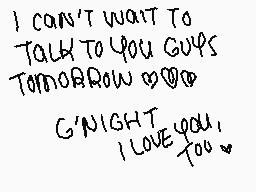 I CAN'T WAIT TO
TALK TO YOU GUYS
TOMORROW ♡♡♡
G'NIGHT
I LOVE YOU,
TOO ♥